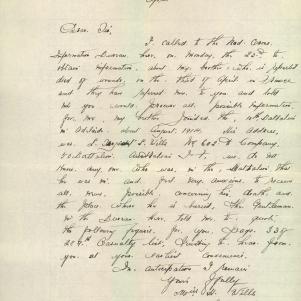 Dear Sir,
I called to the Red Cross
Information Bureau, here, on Monday, the 23rd to
obtain information, about my brother, who, is reported
died of wounds, on the third of April in France
and they have referred me to you and told
me you would, procure all, possible information
for me, my brother joined the, 10th Battalion
in Adelaide about August, 1914, His address,
was, Wills No 603 D Company,
Battalion Australian I F, we do not
know any one who was in the Battalion that
he was in and feel very anxious to receive
all news, possible concerning his death and
the place where he is buried, the Gentleman
in the Bureau here, told me to quote
the following figures, for you, page 33
Casualty list, Trusting to hear from
you at your earliest convenience
In anticipation I remain
Yours faithfully
Wills